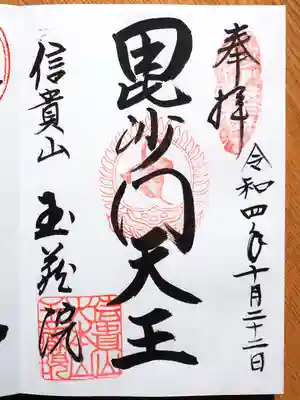 奉拝
令和四年十月二十二日
毘沙門天王
信貴山 玉蔵院